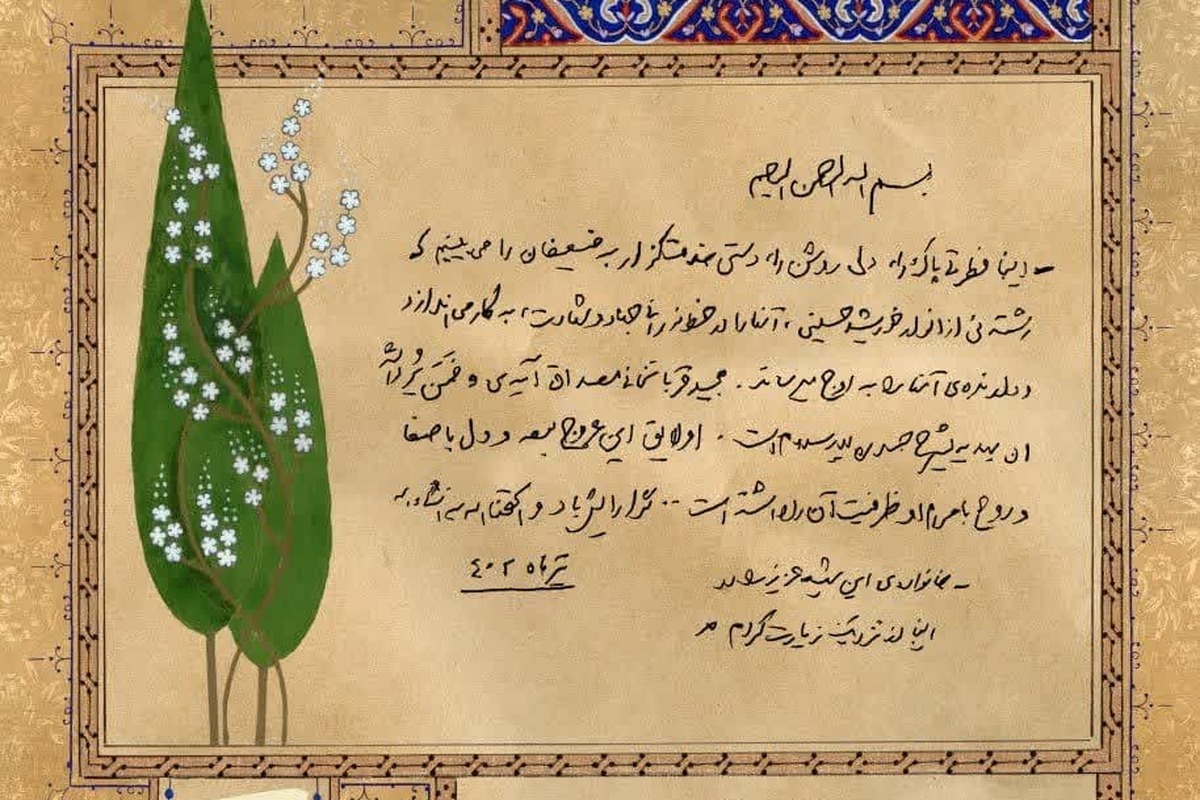 بسم الله الرحمن الرحیم
ـ اینجا فطرتی پاک را، دلی روشن را، دستی خدمتگزار به ضعیفان را می‌بینیم که
رشته‌ئی از انوار خورشید حسینی، آنها را در خط نورانی جهاد و شهادت، به کار می‌اندازد
و دلدادهٔ آنها را به اوج میرساند. مجید قربانخانی مصداق آیه‌ی وَ فَمَن یُرِدِ اللهُ
ان یهدیه یشرح صدره للاسلام است. او لایق این عروج بود و دل باصفا
و روح با مرام او ظرفیت آن را داشته است.. گوارایش باد و الحقنا الله به انشاءالله
ـ خانواده‌ی این شهید عزیز را در
اینجا از نزدیک زیارت کردم
تیرماه ۴۰۲